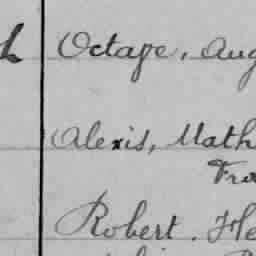 Octape, Aug
Alexis, Math
Fra
Robert. He